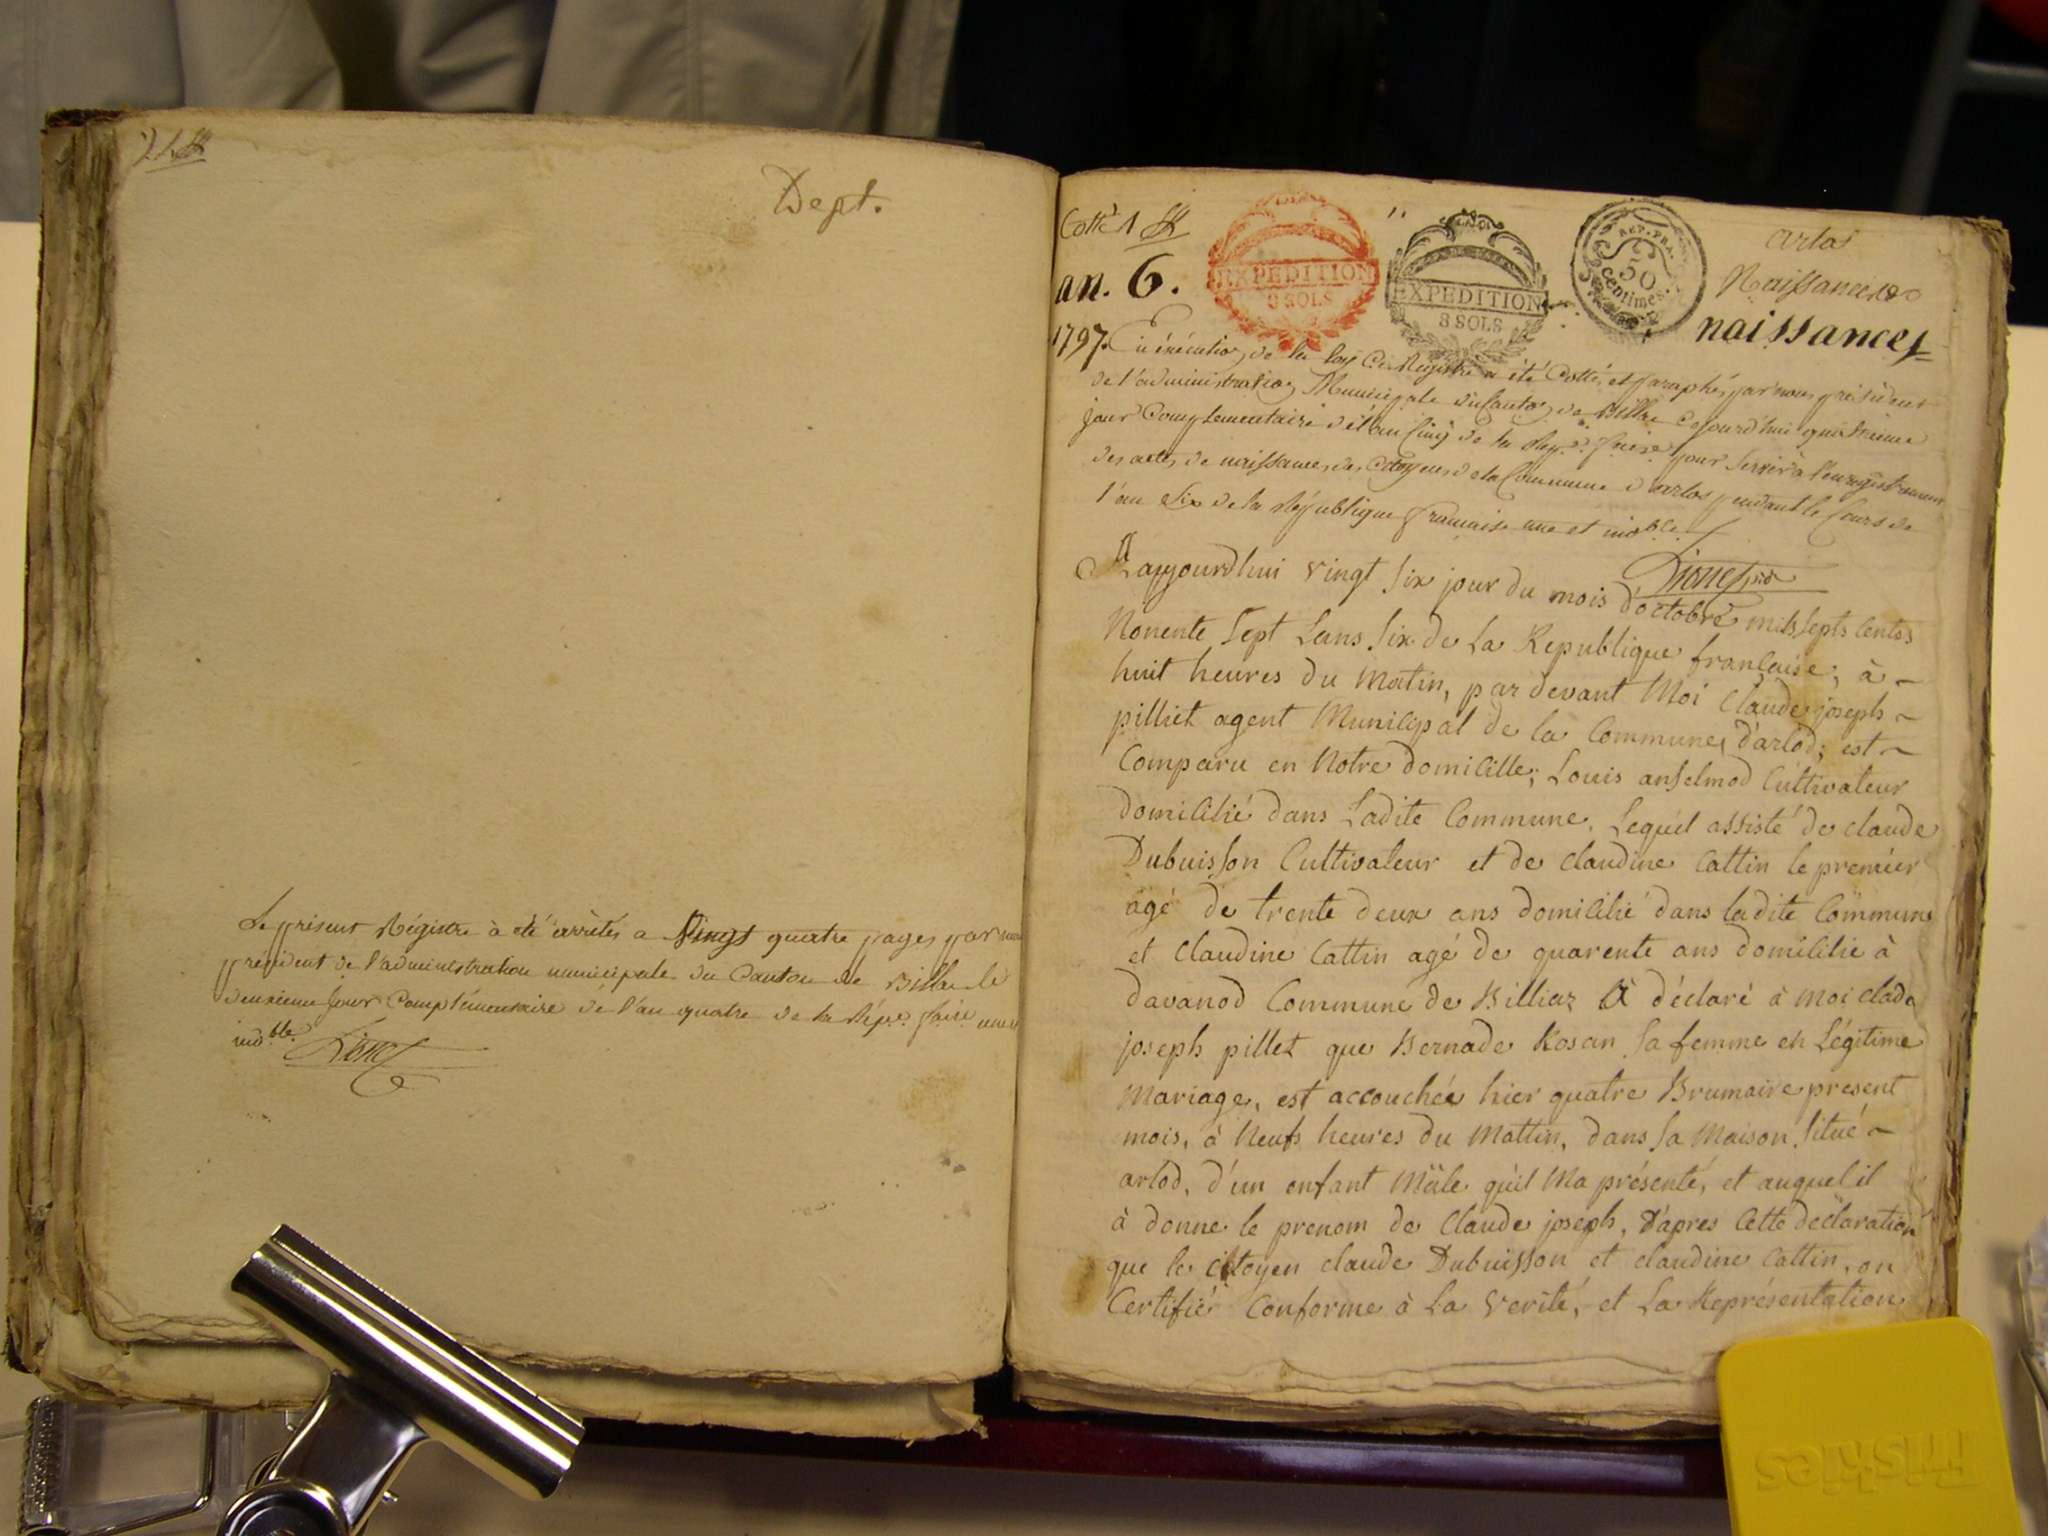 Dept.
Le présent Régistre à été arrêtés a Vingt quatre pages par nous
président de l'administration municipale du Canton de Billia le
deuxieme Jour Complémentaire de l'an quatre de la Répe. faise une
indble.
Cotté 1
an. 6.
1797.
EXPEDITION
8 SOLS
EXPEDITION
8 SOLS
REP. FRA.
50
Centimes.
arlos
Naissances
naissances
En éxécution de la loy Ce Régistre a été Cotté, et paraphé, par nous président
de l'administration Municipale du Canton de Billia cejourd'hui quatrieme
jour Complementaire de l'an Cinq de la Repe. faise. pour Servir à l'enregistrement
des actes de naissance, des Citoyens de la Commune d'arlos pendant le Cours de
l'an Six de la République francaise une et indble.
aujourdhui vingt Six jour du mois d'octobre mils septs cents
Nonente Sept Lans Six de La Republique française; à
huit heures du Matin, par devant Moi Claude joseph
pilliet agent Municipal de la Commune d'arlod; est
Comparu en Notre domicille; Louis anselmod Cultivateur
domicilié dans Ladite Commune. Lequel assisté de claude
Dubuisson Cultivateur et de claudine Cattin le premier
agé de trente deux ans domicilié dans ladite Commune
et Claudine Cattin agé de quarente ans domicilié à
davanod Commune de Billiaz à déclaré à moi clade
joseph pillet que Bernade Rosan Sa femme en Légitime
Mariage, est accouchée hier quatre Brumaire present
mois, à Neufs heures du Mattin, dans Sa Maison Situé
arlod, d'un enfant Mâle qu'il Ma présenté, et auquel il
à donne le prenom de Claude joseph, D'apres Cette declaration
que le citoyen claude Dubuisson et claudine Cattin, on
Certifié Conforme à La verité, et La Représentation
Friskies